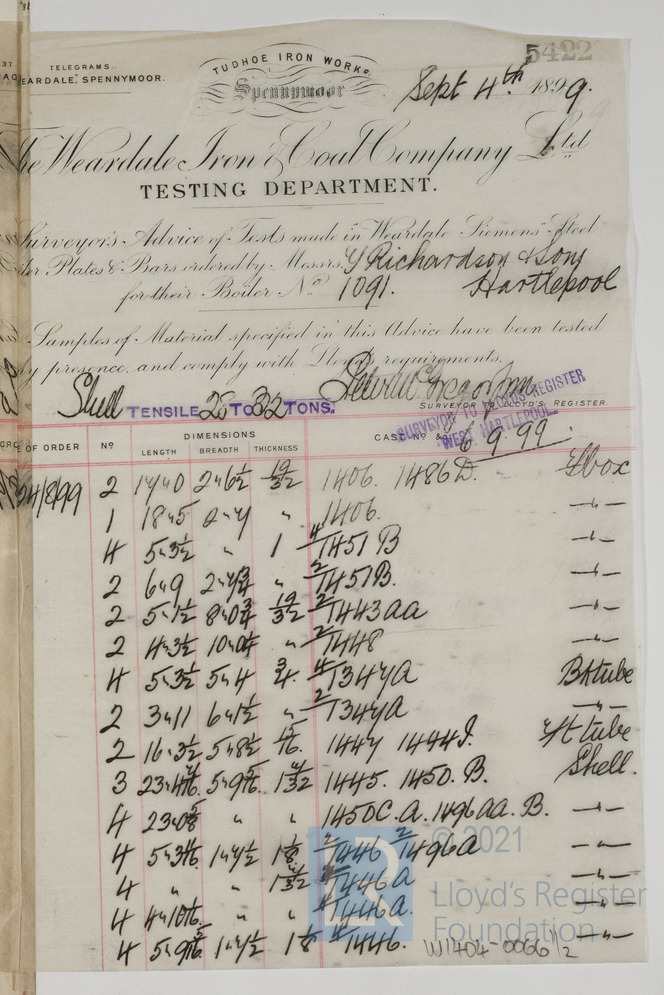 5422
TELEGRAMS.
EARDALE, SPENNYMOOR.
TUDHOE IRON WORKS.
Spennymoor
Sept 4th 1899.
The Weardale Iron & Coal Company Ltd
TESTING DEPARTMENT.
Surveyor's Advice of Tests made in Weardale Siemens-Steel
Plates & Bars ordered by Messrs. Richardson & Sons
for their Boiler No 1091. Hartlepool
Samples of Material specified in this Advice have been tested
y presence, and comply with Lloyds requirements.
Shell TENSILE 28 TO 32 TONS.
SURVEYOR TO LLOYD'S REGISTER.
SURVEYOR TO LLOYD'S REGISTER
WEST HARTLEPOOL
6.9.99
E OF ORDER No DIMENSIONS CAST No &c.
LENGTH BREADTH THICKNESS
24/8/99 2 17"0 2"6½ 19/32 1406. 1486D. Fbox
1 18"5 2"4 " 1406. "
4 5"3½ " 1 4/1451 B "
2 6"9 2"4¾ " 2/1451B. "
2 5"1½ 8"0¾ 19/32 2/1443aa "
2 4"3½ 10"0¼ " 2/1448 "
4 5"3½ 5"4 ¾. 4/1347A Bktube
2 3"11 6"1½ " 2/1347A "
2 16"3½ 5"8½ 15/16. 1447 1444J. Ft tube
3 1445. 1450. B. Shell.
4 " " 1450C.A. 1496AA.B. "
4 1"4½ 1⅛ 2/1446 2/1496A "
4 " " 1446a "
4 " " 1446a. "
4 1"4½ 1⅛ 4/1446. "
W1404-0066 1/2
© 2021
Lloyd's Register
Foundation